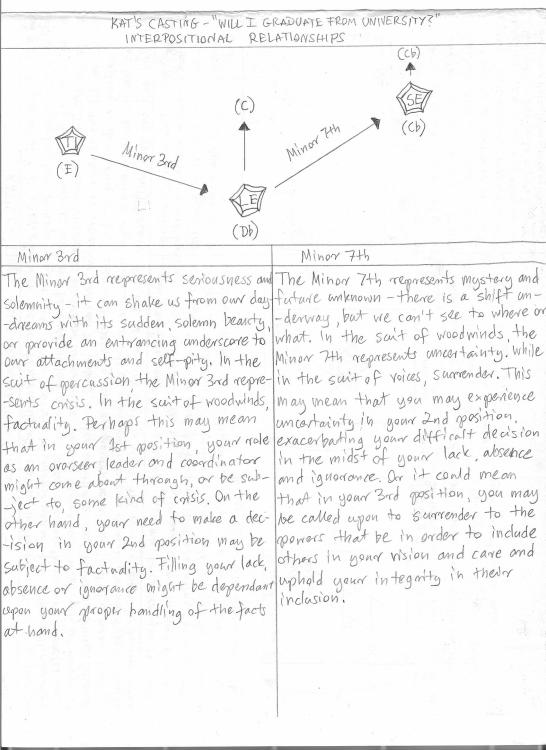 KAT'S CASTING - "WILL I GRADUATE FROM UNIVERSITY?"
INTERPOSITIONAL RELATIONSHIPS
(Cb)
SE
(Cb)
(C)
TI
(E)
Minor 3rd
Minor 7th
LE
(Db)
Minor 3rd
The Minor 3rd represents seriousness and
solemnity - it can shake us from our day-
-dreams with its sudden, solemn beauty,
or provide an entrancing underscore to
our attachments and self-pity. In the
suit of percussion the Minor 3rd repre-
-sents crisis. In the suit of woodwinds,
factuality. Perhaps this may mean
that in your 1st position, your role
as an overseer, leader and coordinator
might come about through, or be sub-
-ject to, some kind of crisis. On the
other hand, your need to make a dec-
-ision in your 2nd position may be
subject to factuality. Filling your lack,
absence or ignorance might be dependant
upon your proper handling of the facts
at hand.
Minor 7th
The Minor 7th represents mystery and
future unknown - there is a shift un-
-derway, but we can't see to where or
what. In the suit of woodwinds, the
Minor 7th represents uncertainty. While
in the suit of voices, surrender. This
may mean that you may experience
uncertainty in your 2nd position,
exacerbating your difficult decision
in the midst of your lack, absence
and ignorance. Or it could mean
that in your 3rd position, you may
be called upon to surrender to the
powers that be in order to include
others in your vision and care and
uphold your integrity in their
inclusion.